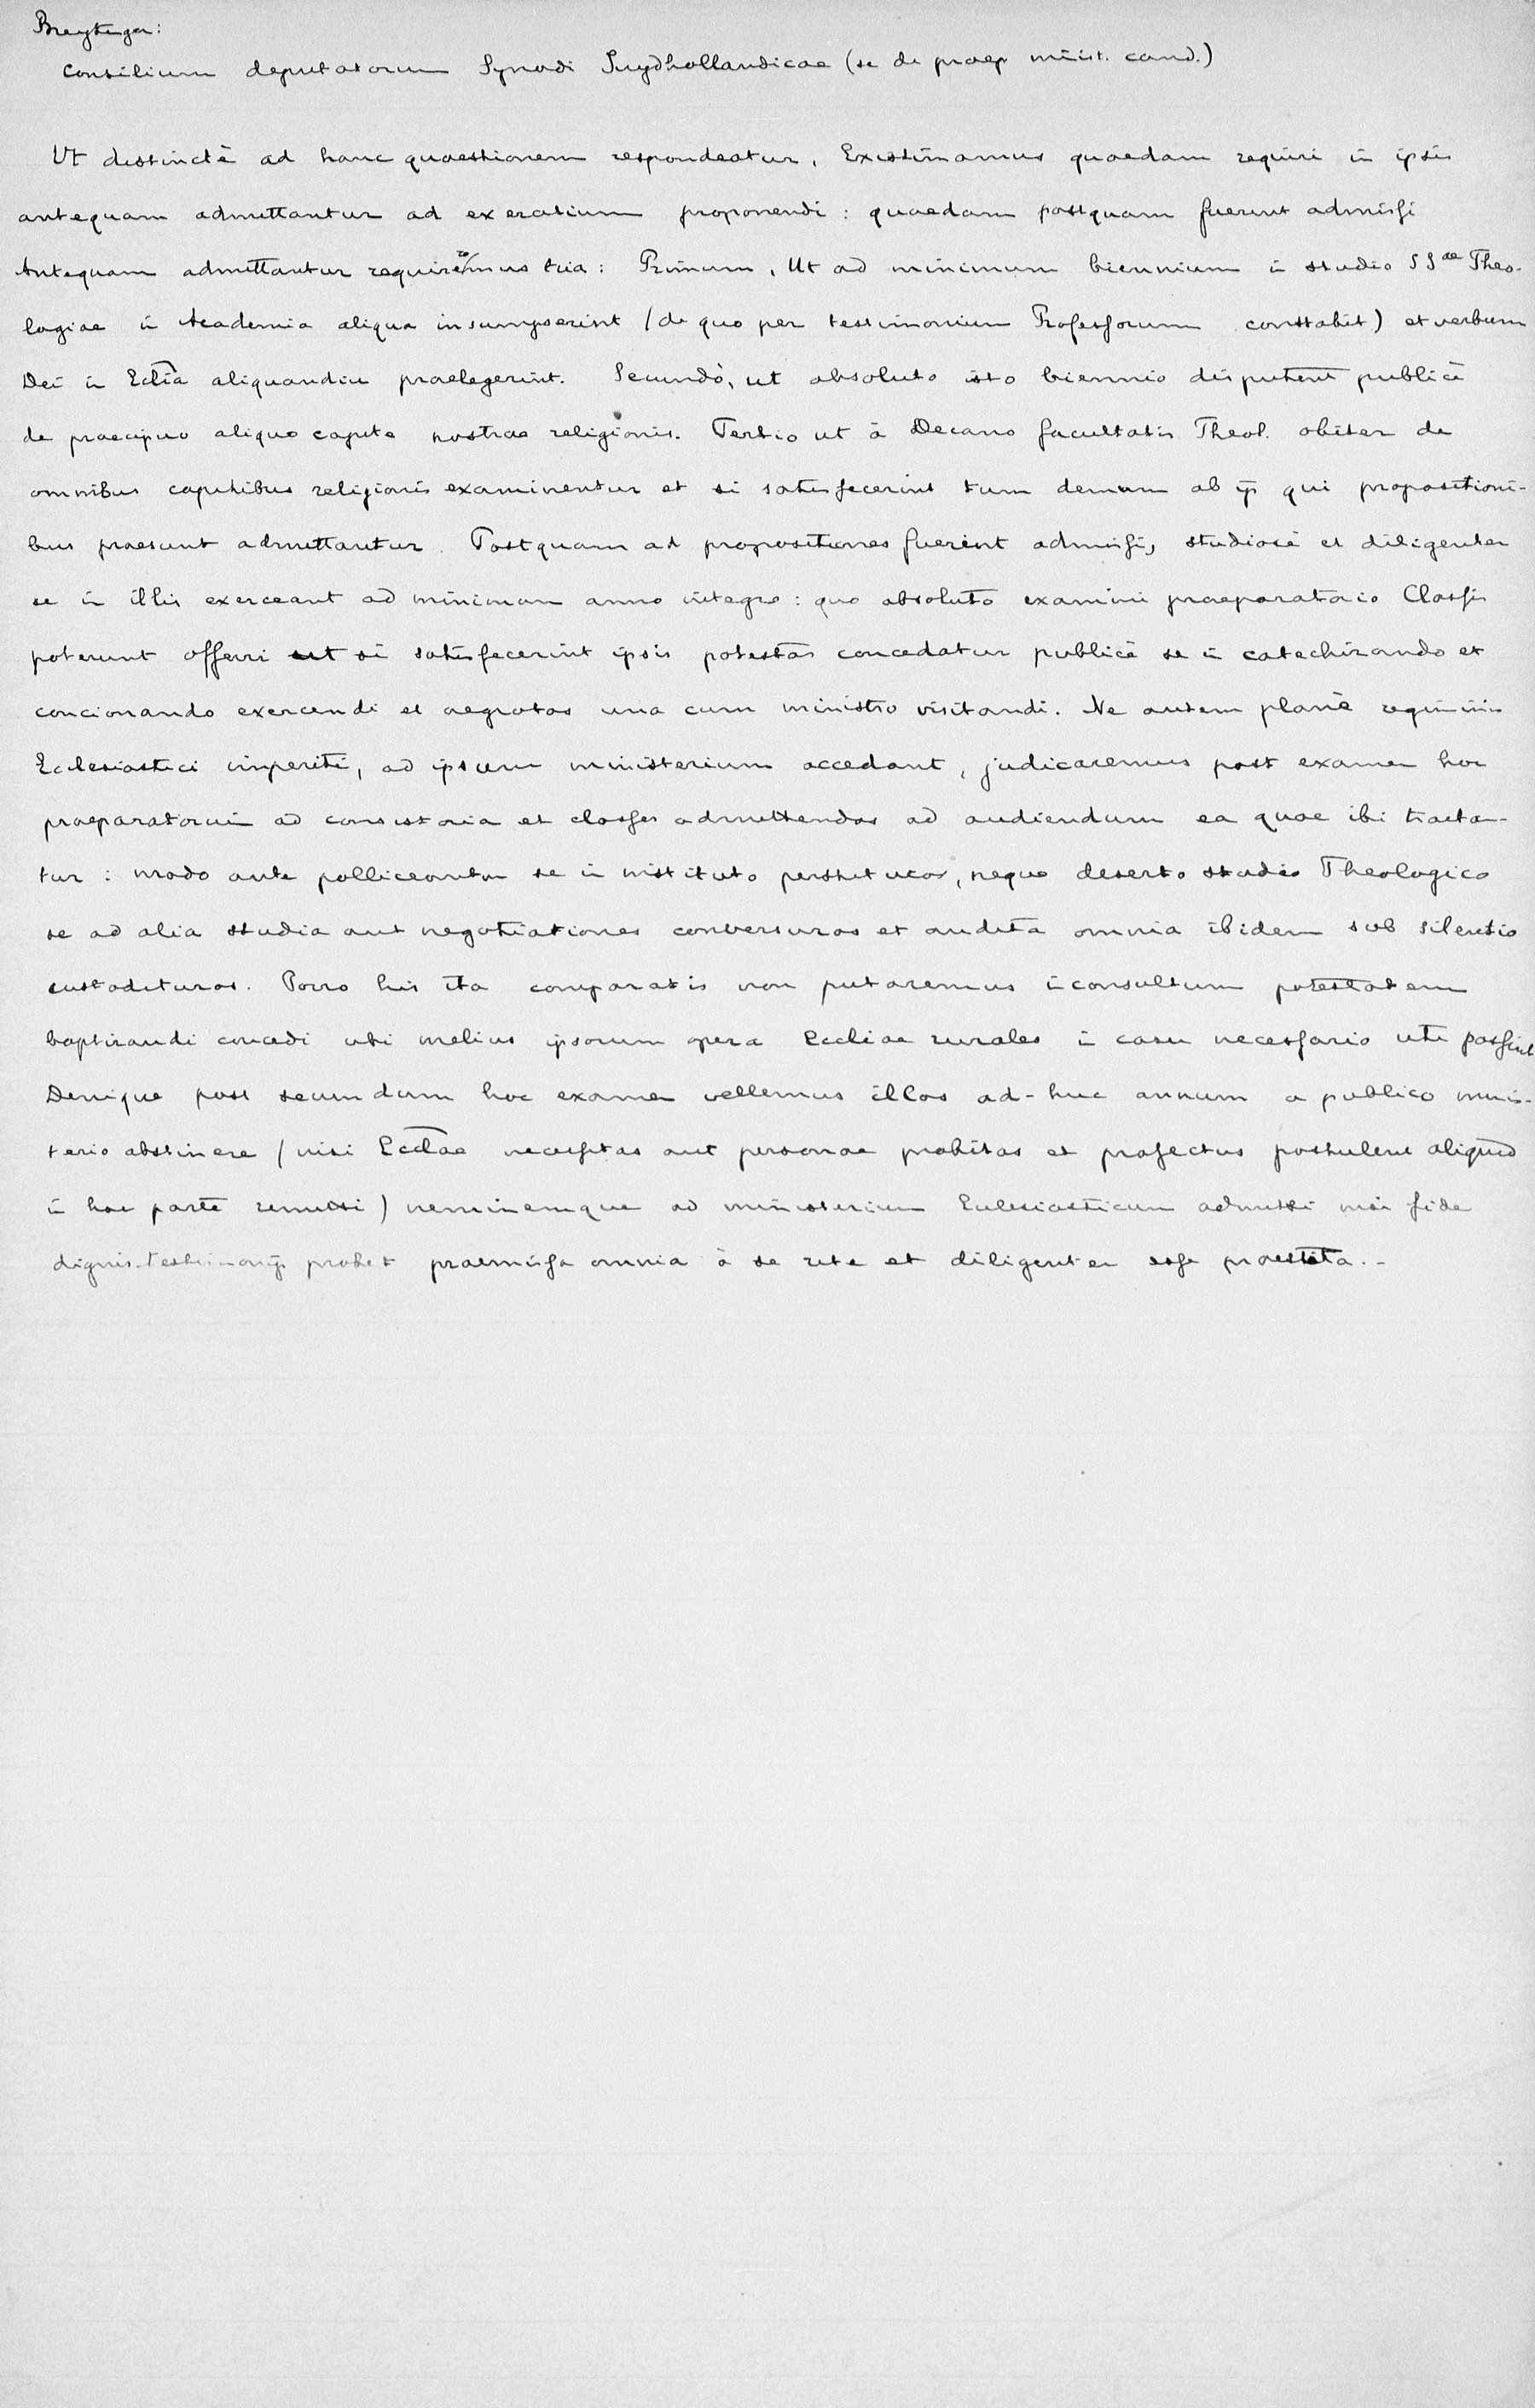 Breytinger:
Consilium deputatorum Synodi Suydhollandicae (sc de praep minist. cand.)
Ut distinctè ad hanc quaestionem respondeatur, Existimamus quaedam requiri in ipsis
antequam admittantur ad exercitium proponendi: quaedam postquam fuerint admissi
Antequam admittantur requireremus tria: Primum, Ut ad minimum biennium in studio SSae Theo-
logiae in Academia aliqua insumpserint (de quo per testimonium Professorum constabit) et verbum
Dei in Ecclīa aliquandiu praelegerint. Secundò, ut absoluto isto biennio disputent publicè
de praecipuo aliquo capite nostrae religionis. Tertio ut à Decano facultatis Theol. obiter de
omnibus capitibus religionis examinentur et si satisfecerint tum demum ab ijs qui propositioni-
bus praesunt admittantur. Postquam ad propositiones fuerint admissi, studiosè et diligenter
se in illis exerceant ad minimum anno integro: quo absoluto examini praeparatorio Classis
poterunt offerri ut si satisfecerint ipsis potestas concedatur publicè se in catechizando et
concionando exercendi et aegrotos una cum ministro visitandi. Ne autem planè regiminis
Ecclesiastici imperiti, ad ipsum ministerium accedant, judicaremus post examen hoc
praeparatorium ad consistoria et classes admittendos ad audiendum ea quae ibi tracta-
tur: modo ante polliceantur se in instituto perstituros, neque deserto studio Theologico
se ad alia studia aut negotiationes conversuros et audita omnia ibidem sub silentio
custodituros. Porro his ita comparatis non putaremus inconsultum potestatem
baptizandi concedi ubi melius ipsorum opera Eccliae rurales in casu necessario uti possint
Denique post secundum hoc examen vellemus illos ad-huc annum a publico minis-
terio abstinere (nisi Eccliae necessitas aut personae probitas et profectus postulent aliquid
in hac parte remitti) neminemque ad ministerium Ecclesiasticum admitti nisi fide
dignis testimonijs probet praemissa omnia à se rite et diligenter esse praestita.-